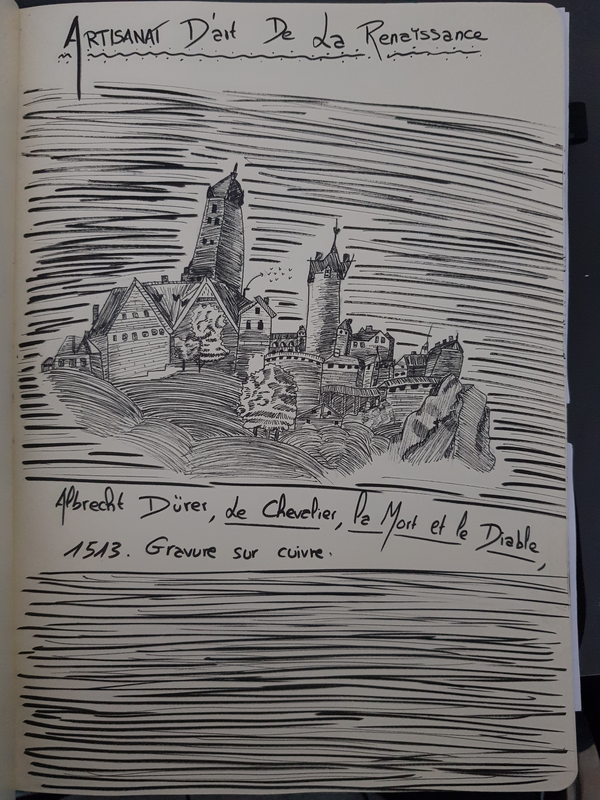 ARTISANAT D'art De La Renaïssance
Albrecht Dürer, Le Chevalier, la Mort et le Diable,
1513. Gravure sur cuivre.